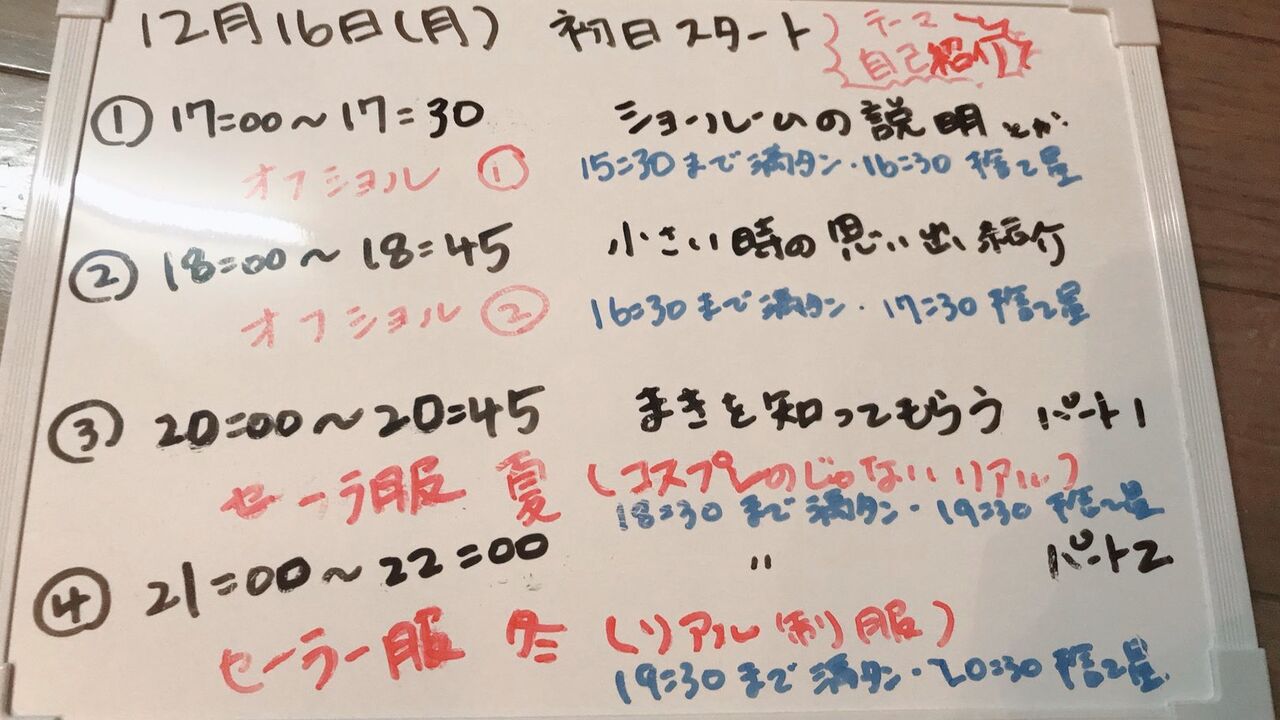 12月16日(月) 初日スタート テーマ
自己紹介
① 17:00〜17:30 ショールームの説明とか
オフショル ① 15:30まで満タン・16:30 捨て星
② 18:00〜18:45 小さい時の思い出し紹介
オフショル ② 16:30まで満タン・17:30 捨て星
③ 20:00〜20:45 まきを知ってもらう パート1
セーラ服 夏 (コスプレのじゃないリアル)
18:30まで満タン・19:30 捨て星
④ 21:00〜22:00 〃 パート2
セーラー服 冬 (リアル制服)
19:30まで満タン・20:30 捨て星